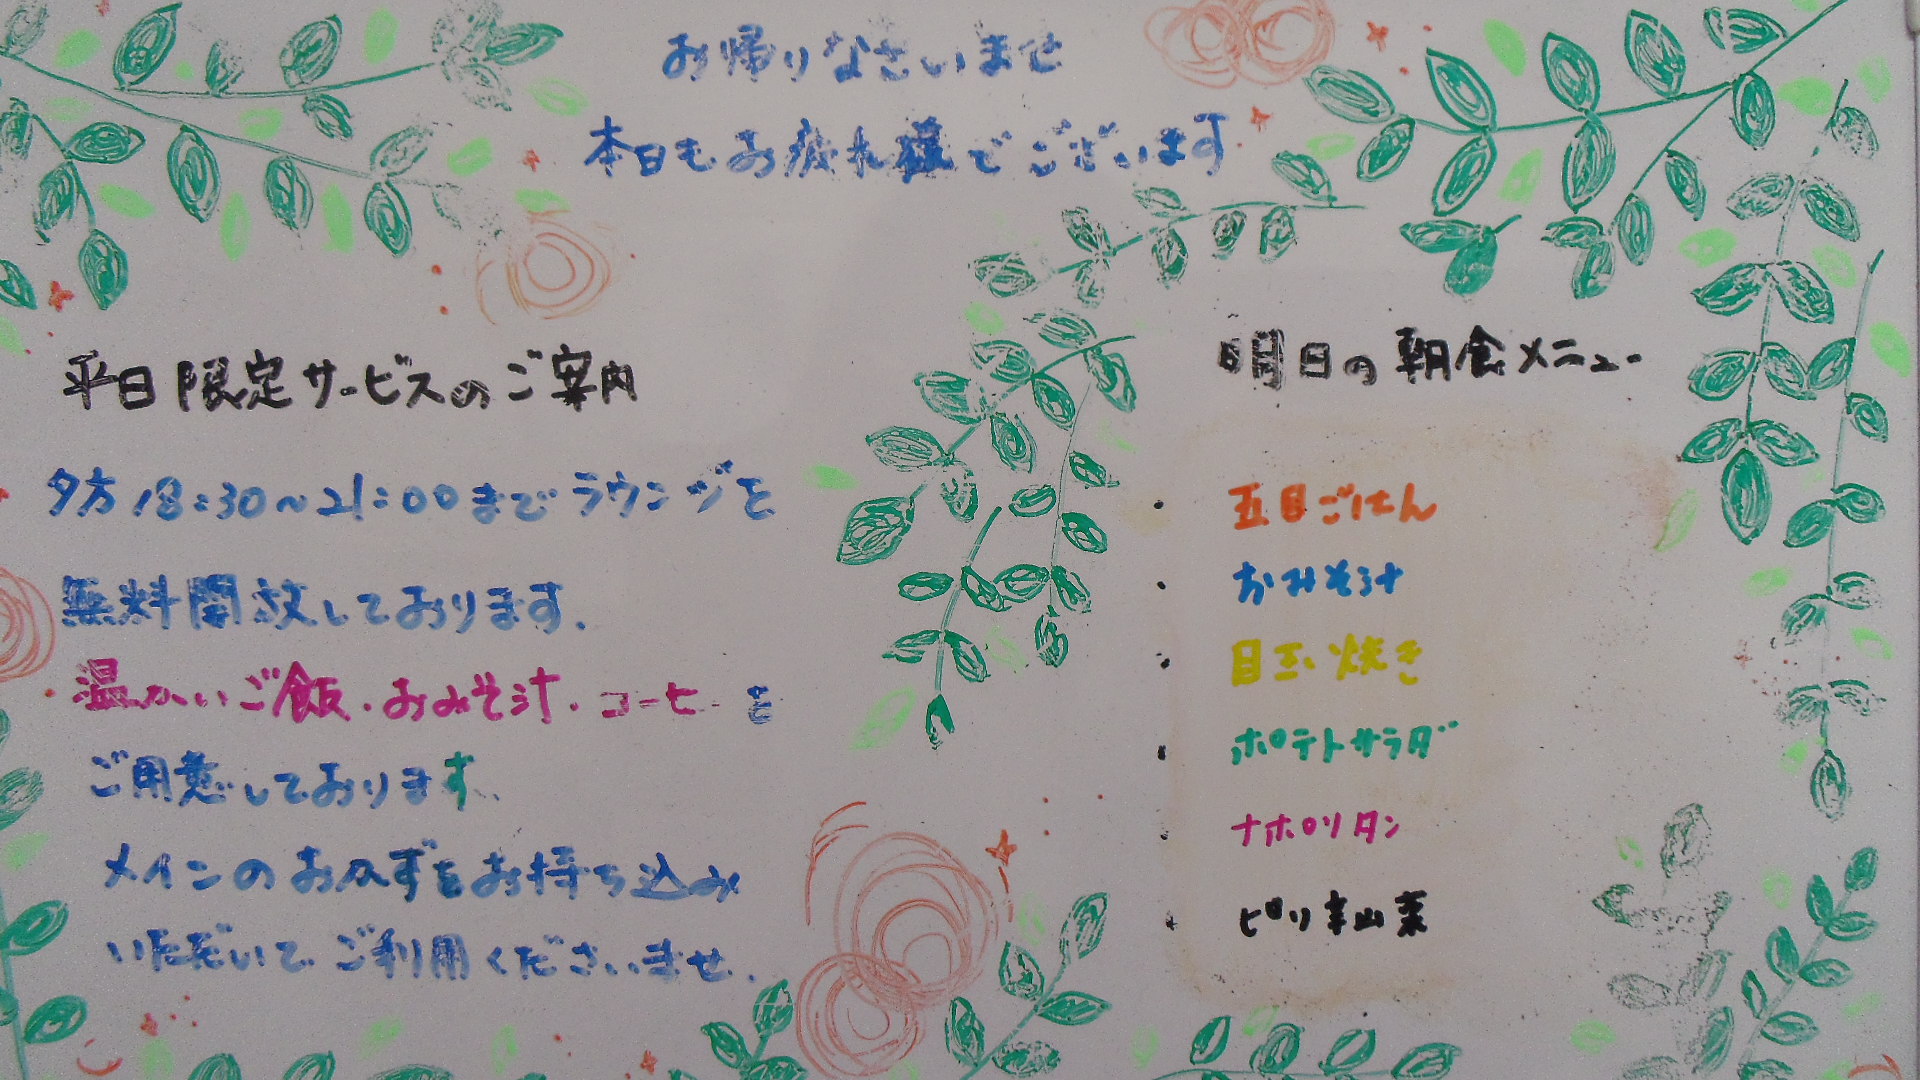 お帰りなさいませ
本日もお疲れ様でございます
平日限定サービスのご案内
夕方18:30～21:00までラウンジを
無料開放しております.
温かいご飯・おみそ汁・コーヒーを
ご用意しております.
メインのおかずをお持ち込み
いただいてご利用くださいませ.
明日の朝食メニュー
・五目ごはん
・おみそ汁
・目玉焼き
・ポテトサラダ
・ナポリタン
・ピリ辛山菜